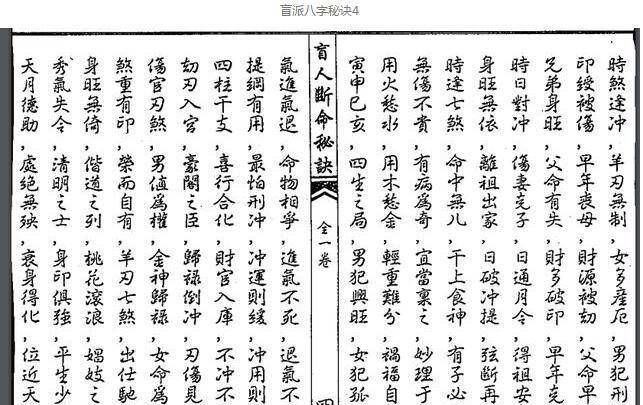 盲派八字秘诀4
時煞逢冲，羊刃無制，女多產厄，男犯刑
印綬被傷，早年喪母，財源被劫，父命早
兄弟身旺，父命有失，財多破印，早年克
時日對冲，傷妻克子，日通月令，得祖安
身旺無依，離祖出家，日破冲提，弦斷再
時逢七煞，命中無兒，干上食神，有子必
無傷不貴，有病為奇，宜當裏之，妙理于
用火愁水，用木愁金，輕重難分，禍福自
寅申巳亥，四生之局，男犯興旺，女犯孤
盲人斷命秘訣
全一卷
四
氣進氣退，命物相爭，進氣不死，退氣不
提綱有用，最怕刑冲，冲運則緩，冲用則
四柱干支，喜行合化，財官入庫，不冲不
劫刃入宮，豪閣之臣，歸祿倒冲，刃傷見
傷官刃煞，男值為權，金神歸祿，女命為
煞重有印，榮而自有，羊刃七煞，出仕馳
身旺無倚，偕道之列，桃花滾浪，娼妓之
秀氣失令，清明之士，身印俱強，平生少
天月德助，處絕無殃，衰身得化，位近天